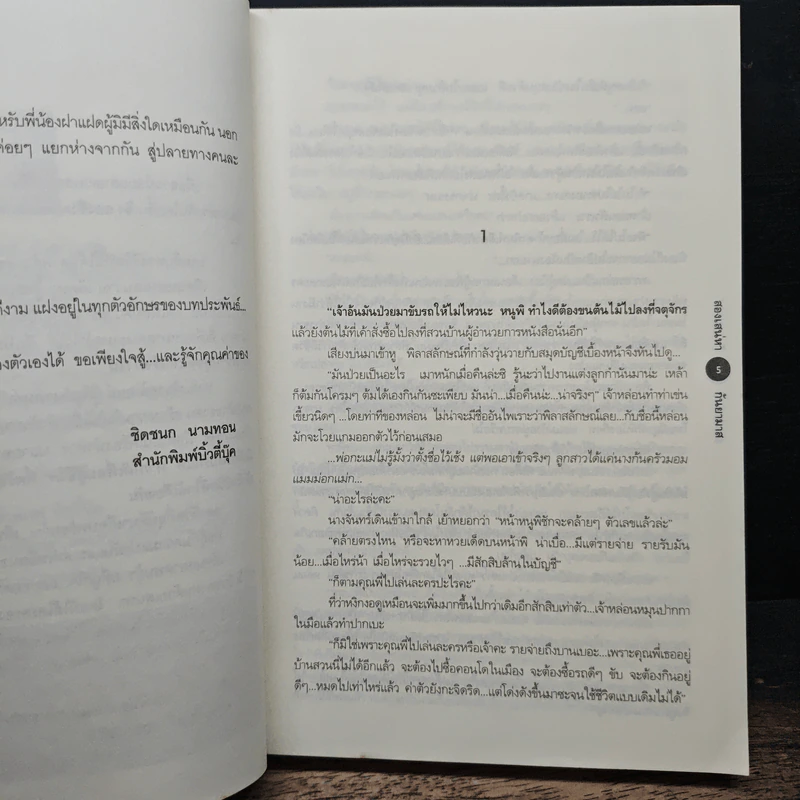 หรับพี่น้องฝาแฝดผู้มิมีสิ่งใดเหมือนกัน นอก
ค่อยๆ แยกห่างจากกัน สู่ปลายทางคนละ
ดีงาม แฝงอยู่ในทุกตัวอักษรของบทประพันธ์...
องตัวเองได้ ขอเพียงใจสู้...และรู้จักคุณค่าของ
ชิดชนก นามทอน
สำนักพิมพ์บิ้วตี้บุ๊ค
1
"เจ้าอ้นมันป่วยมาขับรถให้ไม่ไหวนะ หนูพิ ทำไงดีต้องขนต้นไม้ไปลงที่จตุจักร
แล้วยังต้นไม้ที่เค้าสั่งซื้อไปลงที่สวนบ้านผู้อำนวยการหนังสือนั่นอีก"
เสียงบ่นมาเข้าหู พิลาสลักษณ์ที่กำลังวุ่นวายกับสมุดบัญชีเบื้องหน้าจึงหันไปดู...
"มันป่วยเป็นอะไร เมาหนักเมื่อคืนล่ะซิ รู้นะว่าไปงานแต่งลูกกำนันมาน่ะ เหล้า
ก็ต้มกันโครมๆ ต้มได้เองกินกันซะเพียบ มันน่า...เมื่อคืนน่ะ...น่าจริงๆ" เจ้าหล่อนทำท่าเข่น
เขี้ยวนิดๆ ...โดยท่าทีของหล่อน ไม่น่าจะมีชื่ออันไพเราะว่าพิลาสลักษณ์เลย...กับชื่อนี้หล่อน
มักจะโวยแกมออกตัวไว้ก่อนเสมอ
...พ่อกะแม่ไม่รู้มั้งว่าตั้งชื่อไว้เช้ง แต่พอเอาเข้าจริงๆ ลูกสาวได้แค่นางก้นครัวมอม
แมมม่อกแม่ก...
"น่าอะไรล่ะคะ"
นางจันทร์เดินเข้ามาใกล้ เย้าหยอกว่า "หน้าหนูพิชักจะคล้ายๆ ตัวเลขแล้วล่ะ"
"คล้ายตรงไหน หรือจะหาหวยเด็ดบนหน้าพิ น่าเบื่อ...มีแต่รายจ่าย รายรับมัน
น้อย...เมื่อไหร่น้า เมื่อไหร่จะรวยไวๆ ...มีสักสิบล้านในบัญชี"
"ก็ตามคุณพี่ไปเล่นละครปะไรคะ"
ที่ว่าหงิกงอดูเหมือนจะเพิ่มมากขึ้นไปกว่าเดิมอีกสักสิบเท่าตัว...เจ้าหล่อนหมุนปากกา
ในมือแล้วทำปากเบะ
"ก็มิใช่เพราะคุณพี่ไปเล่นละครหรือเจ้าคะ รายจ่ายถึงบานเบอะ...เพราะคุณพี่เธออยู่
บ้านสวนนี่ไม่ได้อีกแล้ว จะต้องไปซื้อคอนโดในเมือง จะต้องซื้อรถดีๆ ขับ จะต้องกินอยู่
ดีๆ...หมดไปเท่าไหร่แล้ว ค่าตัวยังกะจิดริด...แต่โด่งดังขึ้นมาซะจนใช้ชีวิตแบบเดิมไม่ได้"
สองเสน่หา
5
กิ่งยามาศ